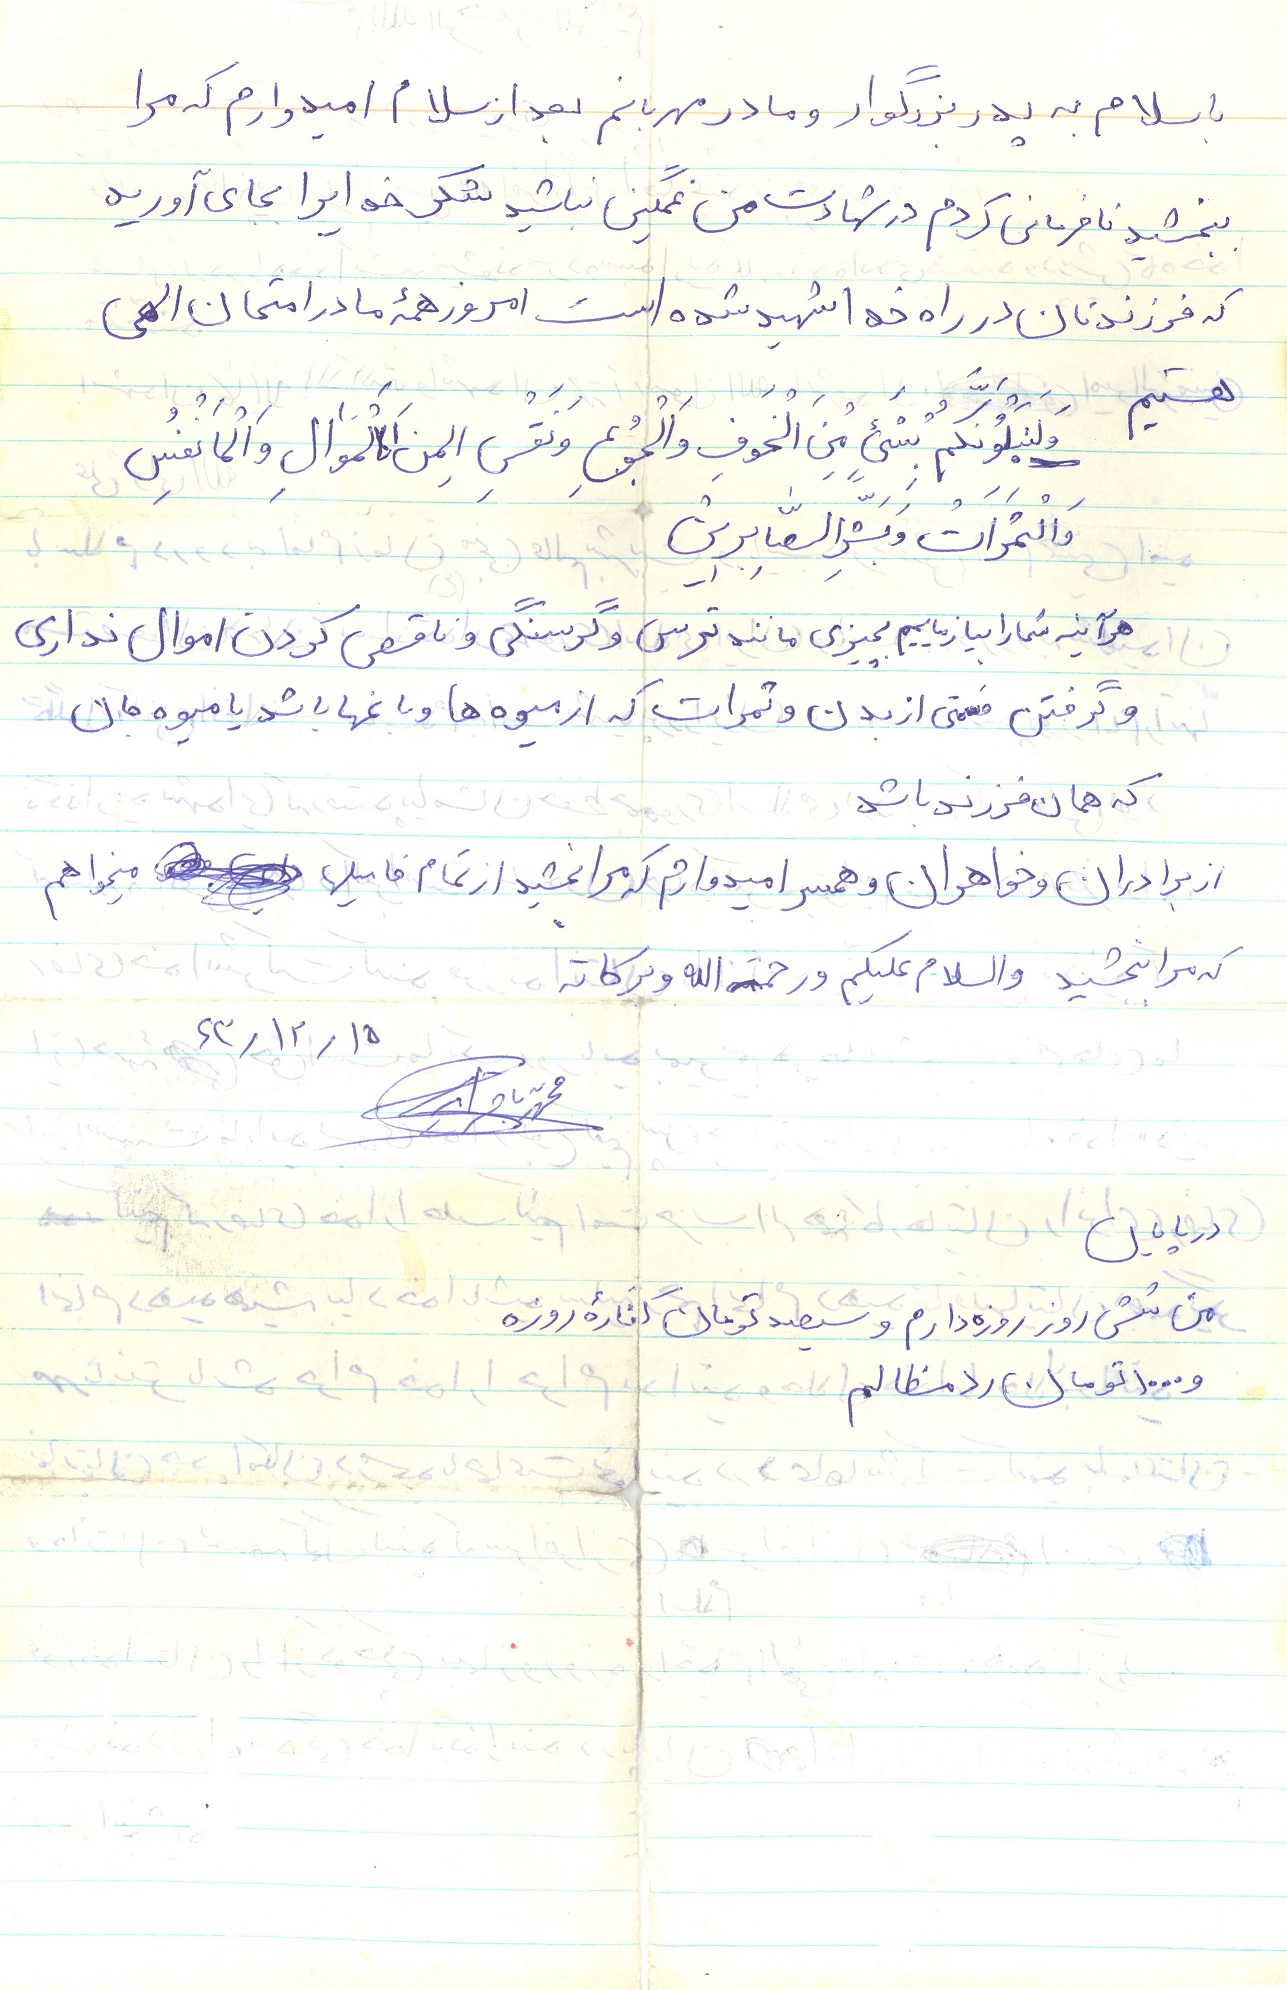 با سلام به پدر بزرگوار و مادر مهربانم بعد از سلام امیدوارم که مرا
ببخشید نافرمانی کردم در شهادت من غمگین نباشید شکر خدا را بجای آورید
که فرزندتان در راه خدا شهید شده است امروز همهٔ ما در امتحان الهی
هستیم
وَلَنَبْلُوَنَّکُم بِشَیْءٍ مِنَ الْخَوفِ وَالْجُوعِ وَنَقْسٍ مِنَ الْأَمْوَالِ وَالْأَنْفُسِ
وَالْثَمَرَاتْ وَبَشِّرِ الصَّابِرِینْ
هرآینه شما را بیازماییم بچیزی مانند ترس و گرسنگی و ناقص کردن اموال نداری
و گرفتن قسمتی از بدن و ثمرات که از میوه ها و باغها باشد یا میوه جان
که همان فرزند باشد
از برادران و خواهران و همسر امیدوارم که مرا بخشید از تمام فامیلها میخواهم
که مرا ببخشید والسلام علیکم ورحمته الله وبرکاته
۶۳/۱۲/۱۵
محمد باقر
در پایان
من شش روز روزه دارم و سیصد تومان کفارهٔ روزه
و ۱۰۰۰ تومان رد مظالم